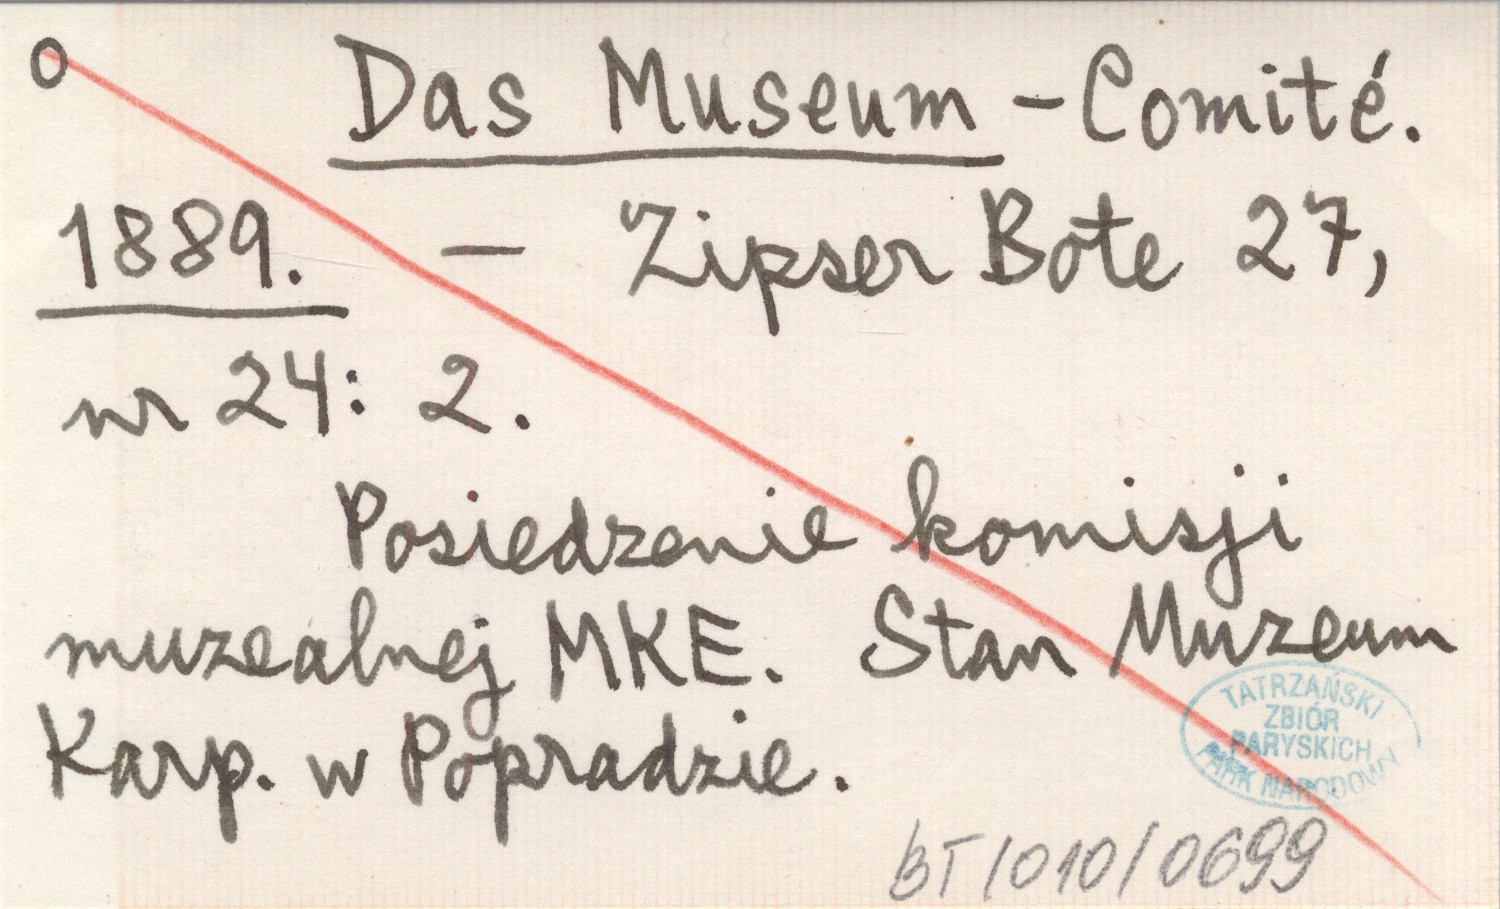 O Das Museum - Comité.
1889. - Zipser Bote 27,
nr 24: 2.
Posiedzenie komisji
muzealnej MKE. Stan Muzeum
Karp. w Popradzie.
TATRZAŃSKI
ZBIÓR
PARYSKICH
PARK NARODOWY
BT/010/0699